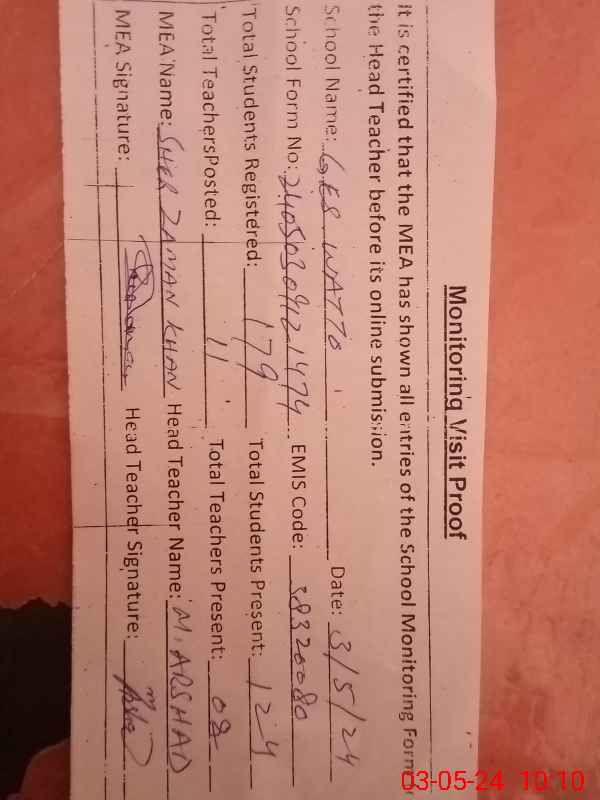 Monitoring Visit Proof
It is certified that the MEA has shown all entries of the School Monitoring Form
the Head Teacher before its online submission.
School Name: GES WATTO Date: 3/5/24
School Form No: 2405030912 1474 EMIS Code: 38320080
Total Students Registered: 179 Total Students Present: 124
Total TeachersPosted: 11 Total Teachers Present: 08
MEA Name: SHER ZAMAN KHAN Head Teacher Name: M. ARSHAD
MEA Signature: Head Teacher Signature:
03-05-24 10:10